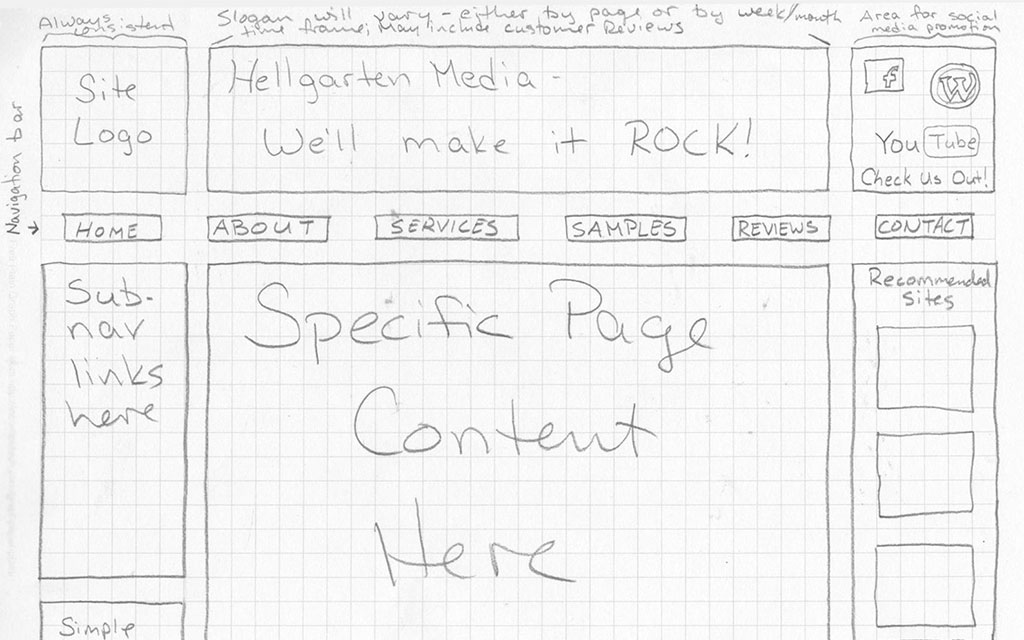 Always consistent
Slogan will vary - either by page or by week/month
time frame; May include customer Reviews
Area for social
media promotion
Navigation bar
Site
Logo
Hellgarten Media -
We'll make it ROCK!
f
W
You Tube
Check Us Out!
HOME
ABOUT
SERVICES
SAMPLES
REVIEWS
CONTACT
Sub-
nav
links
here
Specific Page
Content
Here
Recommended
Sites
Simple